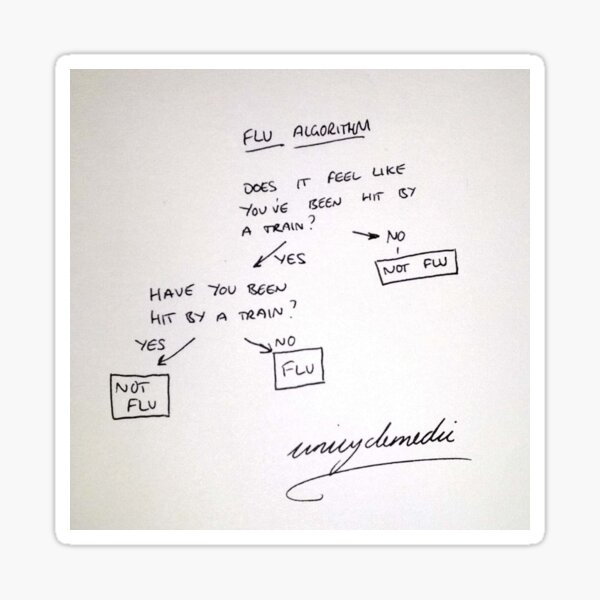 FLU ALGORITHM
DOES IT FEEL LIKE
YOU'VE BEEN HIT BY
A TRAIN?
NO
YES
NOT FLU
HAVE YOU BEEN
HIT BY A TRAIN?
YES
NO
NOT
FLU
FLU
unicyclemedic